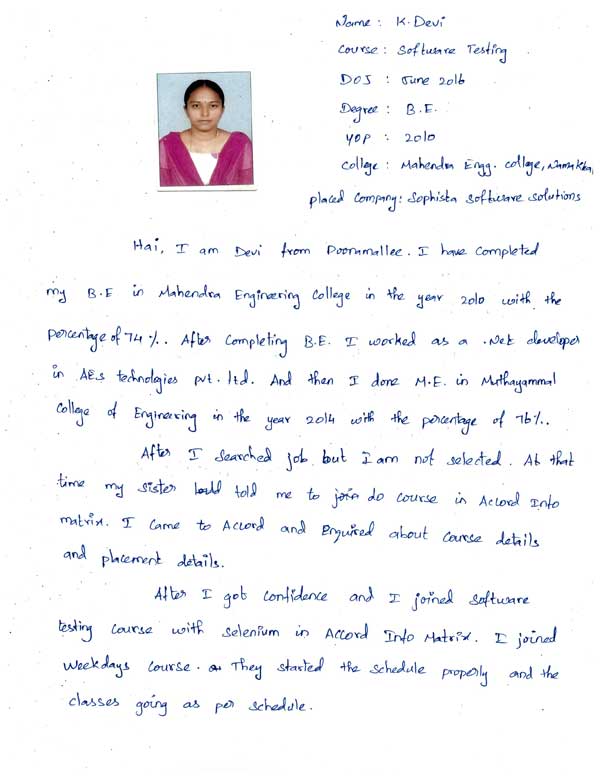 Name : K. Devi
Course : Software Testing
DOJ : June 2016
Degree : B.E.
YOP : 2010
College : Mahendra Engg. college, Namakkal,
placed Company : Sophista software solutions
Hai, I am Devi from Poonamallee. I have completed
my B.E in Mahendra Engineering College in the year 2010 with the
percentage of 74%. After completing B.E. I worked as a .Net developer
in AES technologies pvt. ltd. And then I done M.E. in Muthayammal
College of Engineering in the year 2014 with the percentage of 76%.
After I searched job but I am not selected. At that
time my sister told me to join do course in Accord Info
matrix. I came to Accord and Enquired about course details
and placement details.
After I got confidence and I joined software
testing course with selenium in Accord Info Matrix. I joined
weekdays course. They started the schedule properly and the
classes going as per schedule.